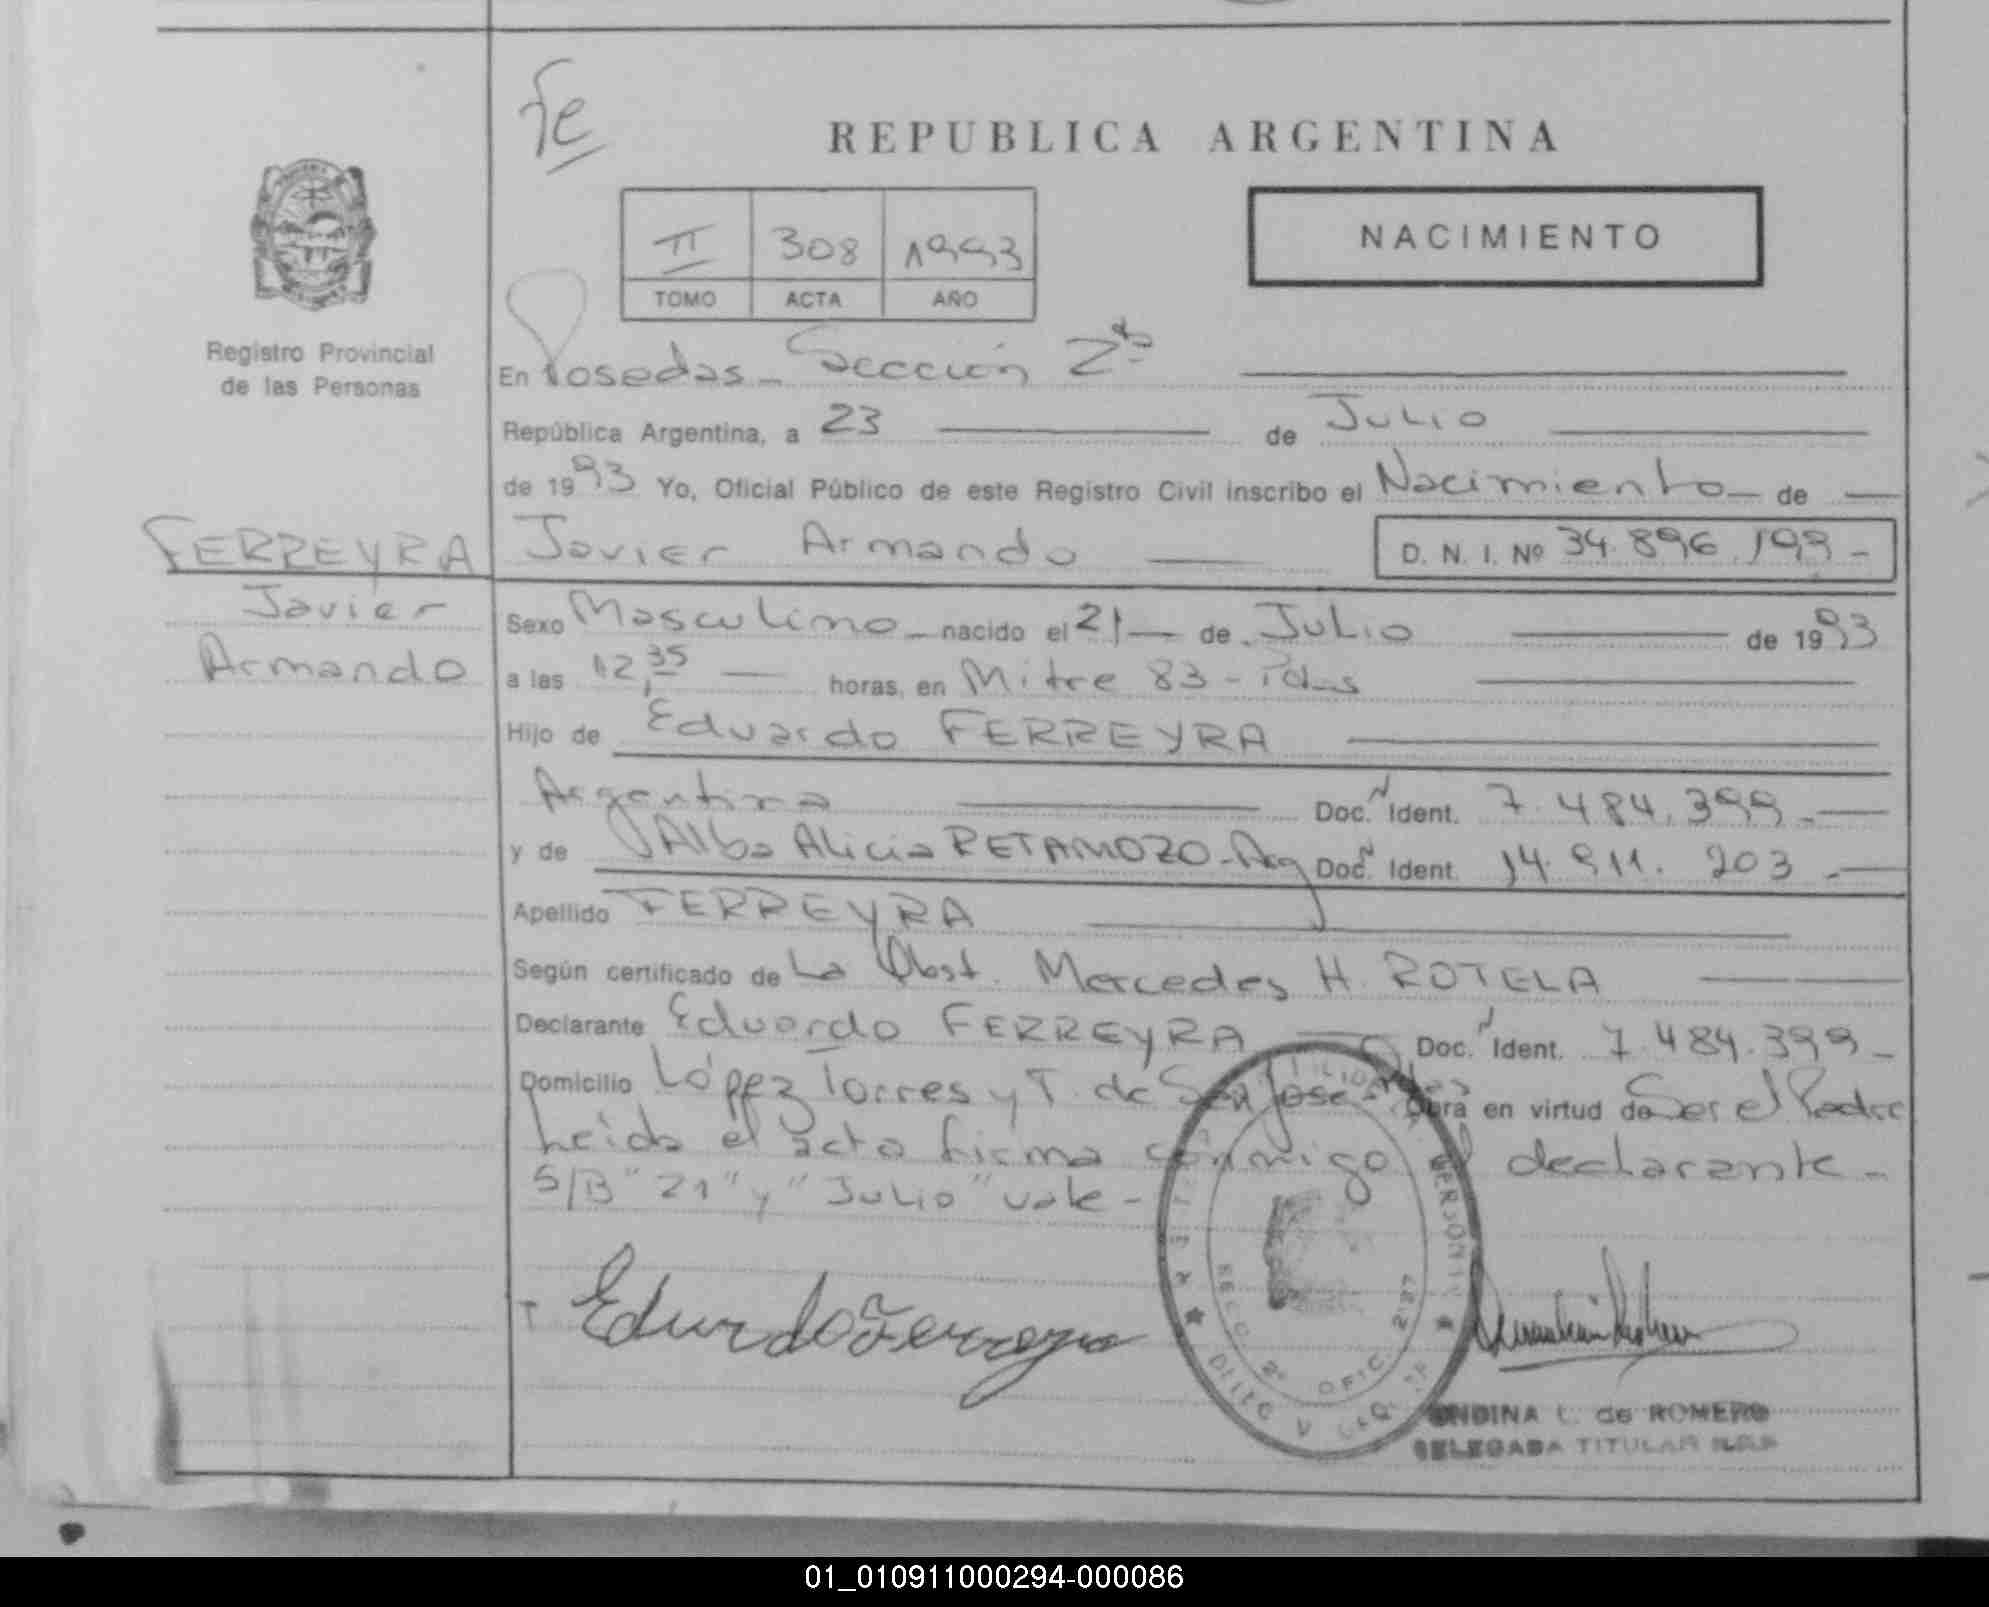 fe
REPUBLICA ARGENTINA
II 308 1993
NACIMIENTO
TOMO ACTA AÑO
Registro Provincial
de las Personas
En Posedas - Sección 2da
República Argentina, a 23 de Julio
de 1993 Yo, Oficial Público de este Registro Civil inscribo el Nacimiento de
FERREYRA Javier Armando D. N. I. Nº 34.896.193 -
Javier
Armando
Sexo Masculino nacido el 21 de Julio de 1993
a las 12,35 horas, en Mitre 83 - Pdas
Hijo de Eduardo FERREYRA
Argentina Doc. N Ident. 7.484.399 -
y de Alba Alicia RETAMOZO - Arg Doc. N Ident. 14.911.203 -
Apellido FERREYRA
Según certificado de La Obst. Mercedes H. ROTELA
Declarante Eduardo FERREYRA Doc. N Ident. 7.484.399 -
Domicilio López Torres y T. de San Jose - Obra en virtud de Ser el Padre
Leida el acta firma conmigo el declarante -
S/B "21" y "Julio" vale -
Eduardo Ferreyra
SECC. 2º OFIC. 2137
ONDINA L. de ROMERO
DELEGADA TITULAR R.P.P.
01_010911000294-000086